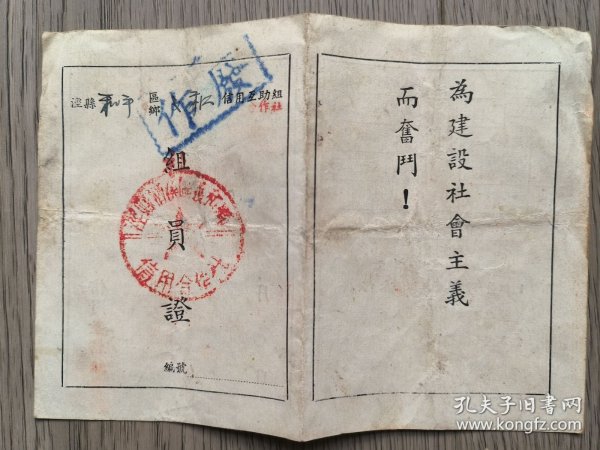 為建設社會主義
而奮鬥！
涇縣 和平 區鄉 信用互助組
合作社
作廢
組員證
信用合作社
編號
孔夫子旧书网
www.kongfz.com